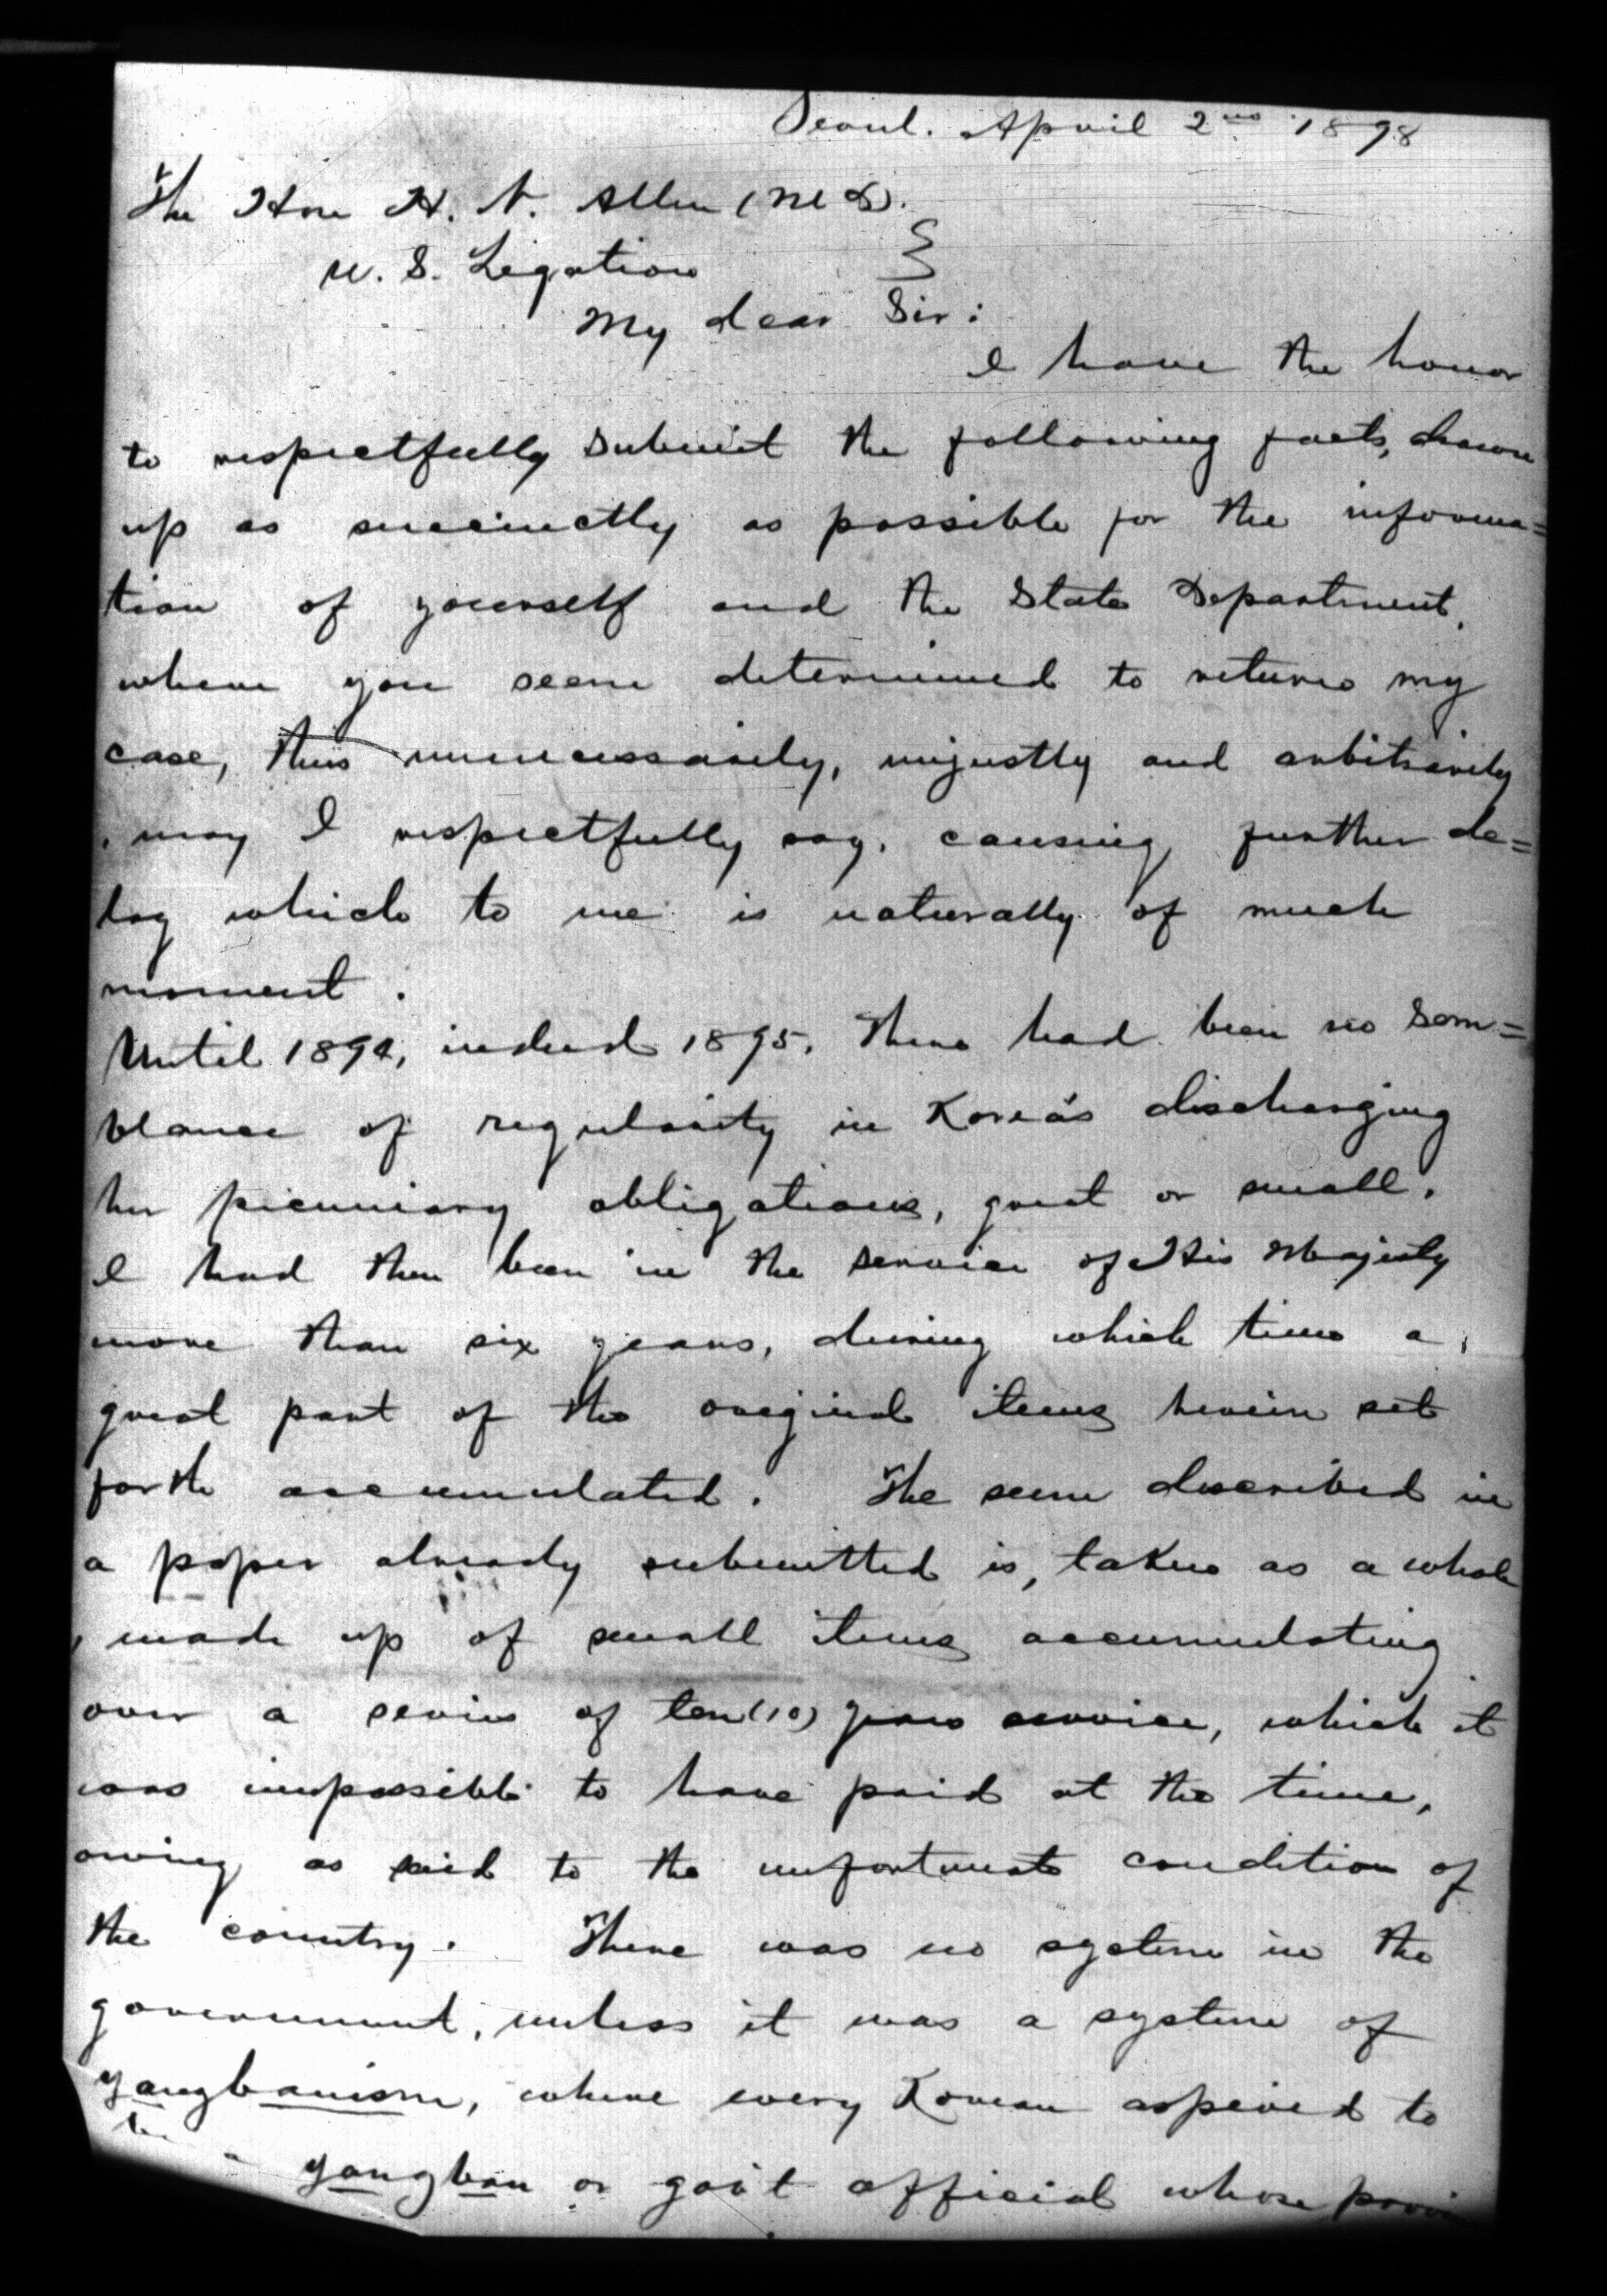 Seoul. April 2nd 1898
The Hon H. N. Allen (M D).
U. S. Legation
My dear Sir:
I have the honor
to respectfully submit the following facts, drawn
up as succinctly as possible for the informa=
tion of yourself and the State Department,
where you seem determined to return my
case, thus unnecessarily, unjustly and arbitrarily
, may I respectfully say, causing further de=
lay which to me is naturally of much
moment.
Until 1894, indeed 1895, there had been no sem=
blance of regularity in Korea's discharging
her pecuniary obligations, great or small.
I had then been in the service of His Majesty
more than six years, during which time a
great part of the original items herein set
forth accumulated. The sum described in
a paper already submitted is, taken as a whole
, made up of small items accumulating
over a series of ten (10) years service, which it
was impossible to have paid at the time,
owing as said to the unfortunate condition of
the country. There was no system in the
government, unless it was a system of
yangbanism, where every Korean aspired to
be a yangban or gov't official whose